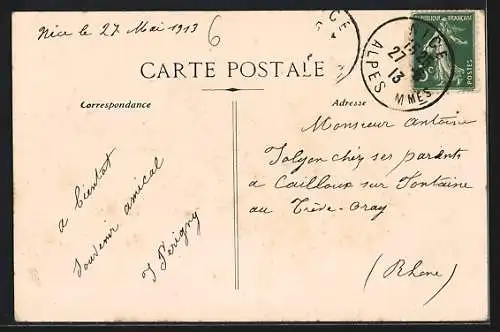 Nice le 27 Mai 1913
6
CARTE POSTALE
Correspondance
Adresse
REPUBLIQUE FRANÇAISE
POSTES
5c
NICE
27 - 5
13
ALPES MMES
a bientot
Souvenir amical
J Périgny
Monsieur Antoine
Jolyon chez ses parents
a Cailloux sur Fontaine
au Trève-Oray
(Rhone)